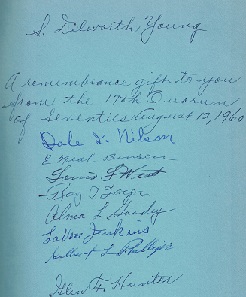 S. Dilworth, Young
A remembrance gift to you
from the 17th Quorum
of Seventies August 12, 1960
Dale H. Nilson
E Neal
Lewis G West
Roy T
Alma L
Perkins
Albert L Phillips
Glen Hunter